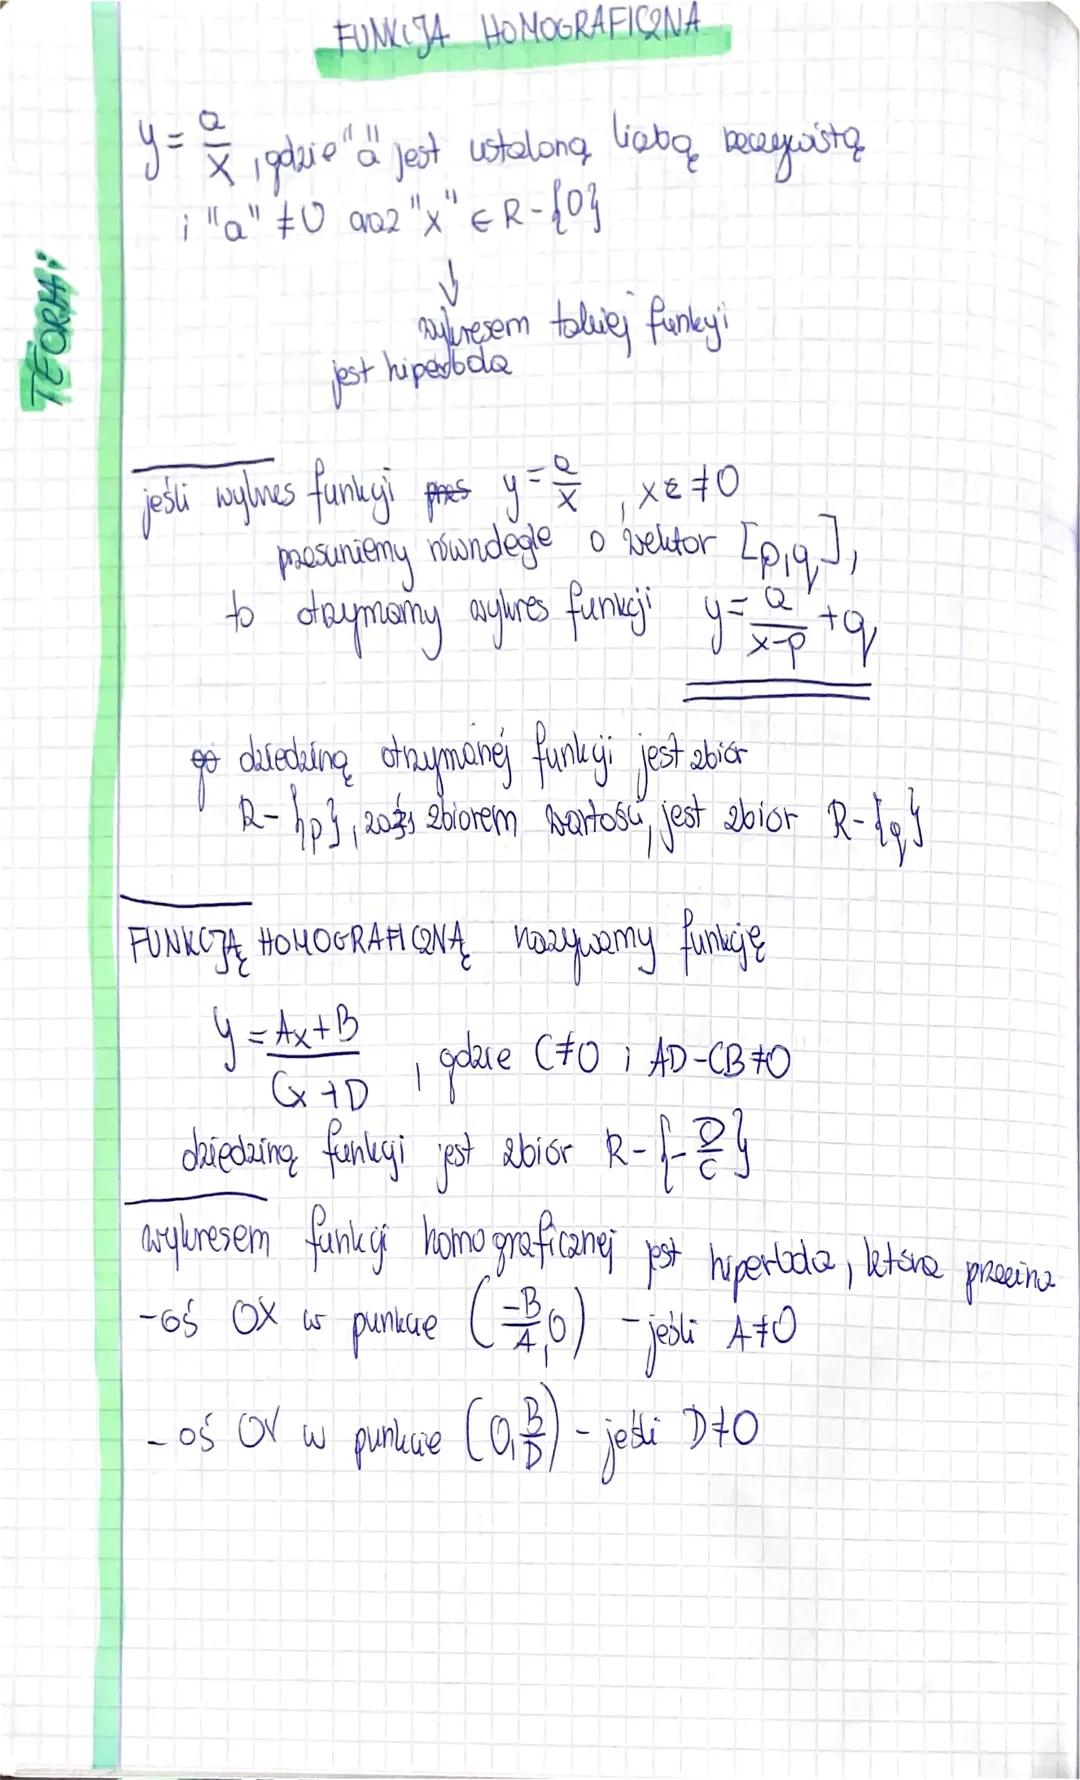 FUNKCJA HOMOGRAFICZNA
TEORIA:
y = a/x , gdzie "a" jest ustaloną liczbą rzeczywistą
i "a" ≠ 0 oraz "x" ∈ R-{0}
↓
wykresem takiej funkcji
jest hiperbola
jeśli wykres funkcji y = a/x , x ≠ 0
przesuniemy równolegle o wektor [p,q],
to otrzymamy wykres funkcji y = a/(x-p) + q
dziedziną otrzymanej funkcji jest zbiór
R-{p}, zaś zbiorem wartości, jest zbiór R-{q}
FUNKCJĄ HOMOGRAFICZNĄ nazywamy funkcję
y = (Ax+B)/(Cx+D) , gdzie C≠0 i AD-CB≠0
dziedziną funkcji jest zbiór R-{-D/C}
wykresem funkcji homograficznej jest hiperbola, która przecina
-oś OX w punkcie (-B/A, 0) - jeśli A≠0
- oś OY w punkcie (0, B/D) - jeśli D≠0